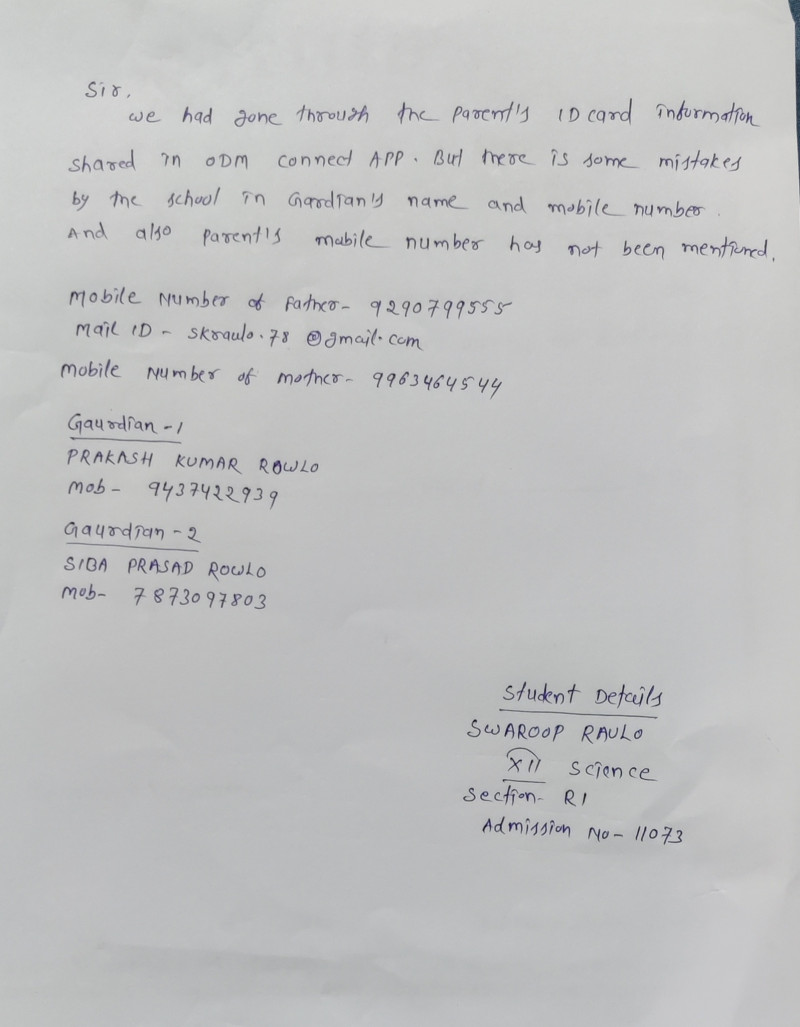 Sir,
we had gone through the Parent's ID card information
shared in ODM connect APP. But there is some mistakes
by the school in Gardian's name and mobile number.
And also Parent's mobile number has not been mentioned.
Mobile Number of Father- 9290799555
Mail ID - skraulo.78@gmail.com
Mobile Number of mother- 9963464544
Gaurdian -1
PRAKASH KUMAR ROWLO
Mob- 9437422939
Gaurdian -2
SIBA PRASAD ROWLO
Mob- 7873097803
Student Details
SWAROOP RAULO
XII Science
Section- R1
Admission No- 11073